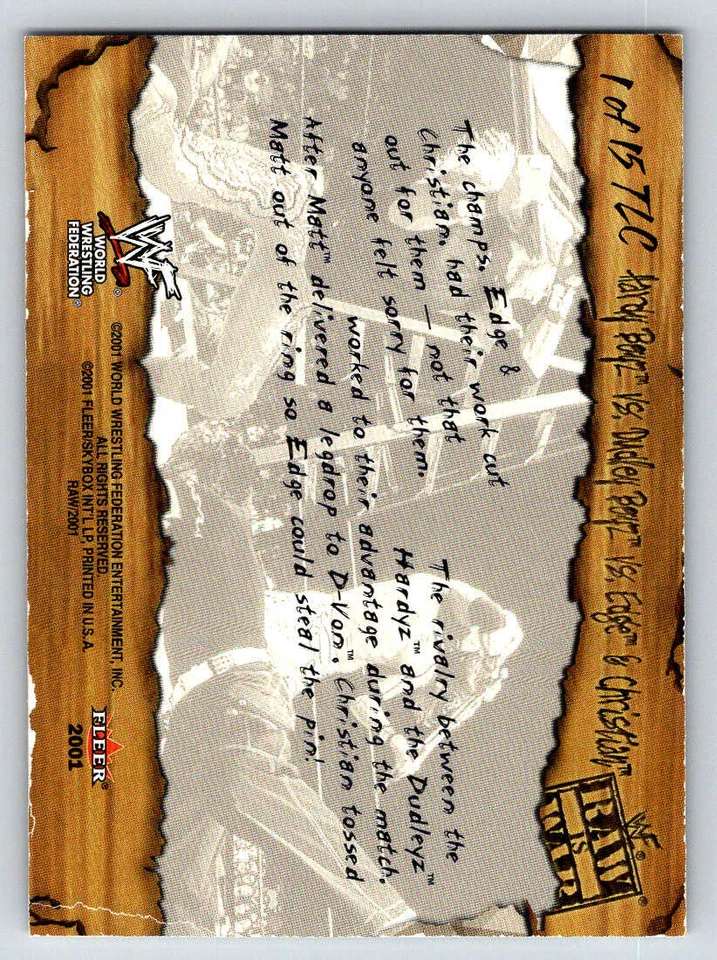 1 of 15 TLC Hardy Boyz™ vs. Dudley Boyz™ vs. Edge™ & Christian™
WF®
RAW
IS
WAR
The champs, Edge &
Christian, had their work cut
out for them — not that
anyone felt sorry for them.
The rivalry between the
Hardyz™ and the Dudleyz™
worked to their advantage during the match.
After Matt™ delivered a legdrop to D-Von™, Christian tossed
Matt out of the ring so Edge could steal the pin!
WF
®
WORLD
WRESTLING
FEDERATION®
©2001 WORLD WRESTLING FEDERATION ENTERTAINMENT, INC.
ALL RIGHTS RESERVED.
©2001 FLEER/SKYBOX INT'L LP, PRINTED IN U.S.A.
RAW/2001
FLEER®
2001